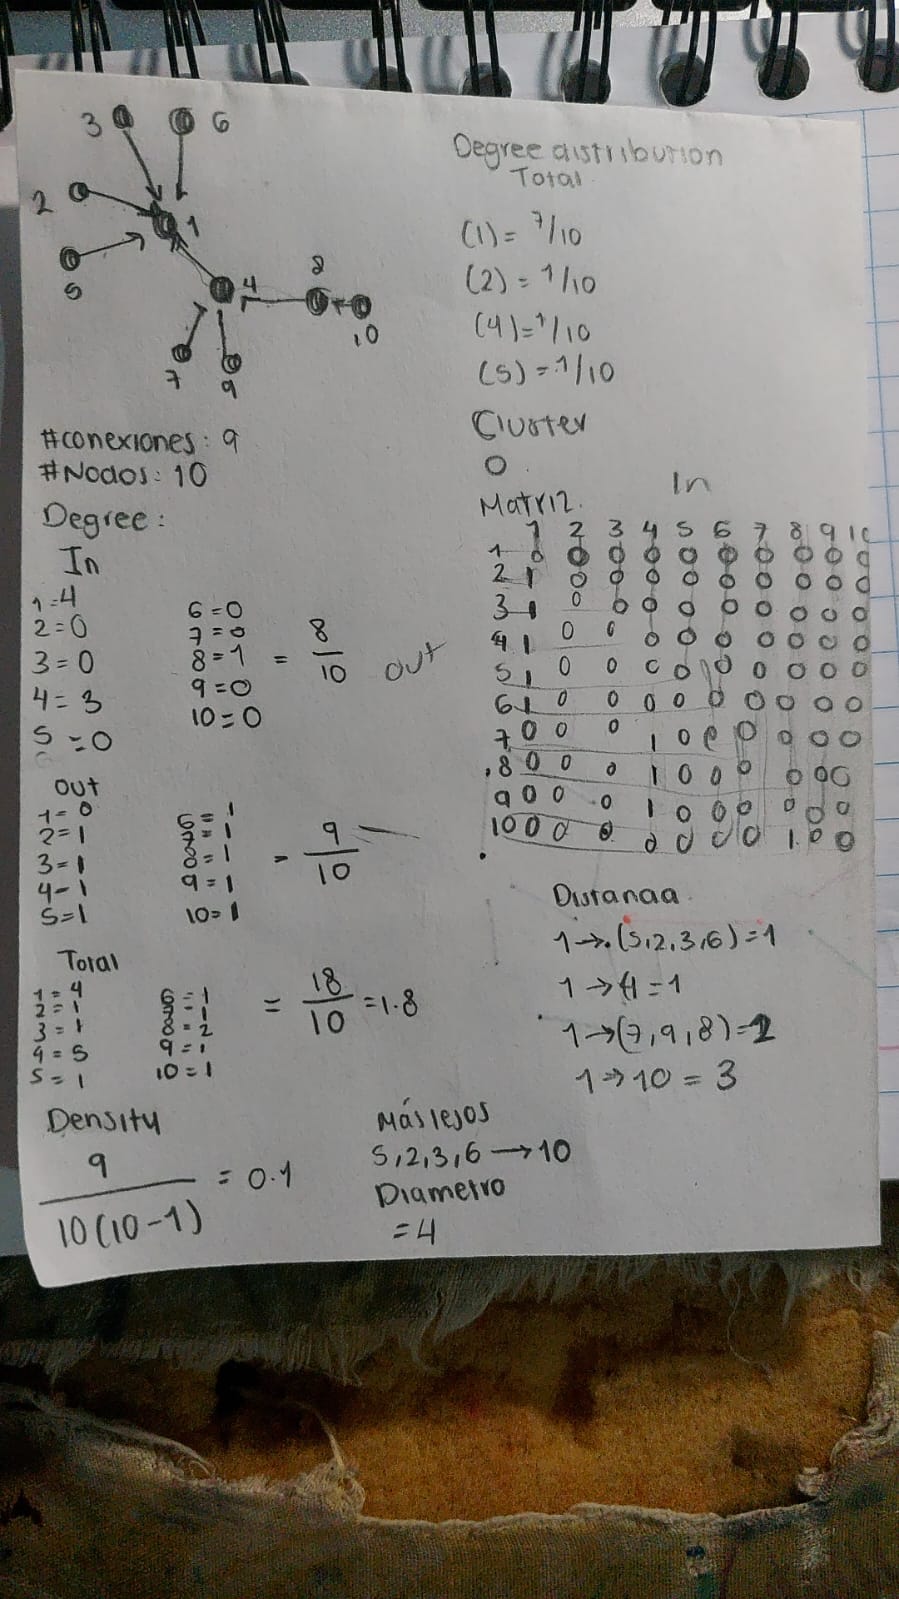 3
6
2
1
5
4
8
10
7
9
#conexiones: 9
#Nodos: 10
Degree:
In
1=4
2=0
3=0
4=3
5=0
6=0
7=0
8=1
9=0
10=0
= 8/10
out
out
1=0
2=1
3=1
4-1
5=1
6=1
7=1
8=1
9=1
10=1
- 9/10
Total
1=4
2=1
3=1
4=5
5=1
6=1
7=1
8=2
9=1
10=1
= 18/10 =1.8
Density
9/10(10-1) = 0.1
Degree distribution
Total
(1)= 7/10
(2)= 1/10
(4)=1/10
(5)=1/10
Cluster
0
Matriz.
In
1 2 3 4 5 6 7 8 9 10
1 0 0 0 0 0 0 0 0 0 0
2 1 0 0 0 0 0 0 0 0 0
3 1 0 0 0 0 0 0 0 0 0
4 1 0 0 0 0 0 0 0 0 0
5 1 0 0 0 0 0 0 0 0 0
6 1 0 0 0 0 0 0 0 0 0
7 0 0 0 1 0 0 0 0 0 0
8 0 0 0 1 0 0 0 0 0 0
9 0 0 0 1 0 0 0 0 0 0
10 0 0 0 0 0 0 0 1 0 0
Distancia
1→(5,2,3,6)=1
1→4=1
1→(7,9,8)=2
1→10=3
Más lejos
5,2,3,6→10
Diametro
=4